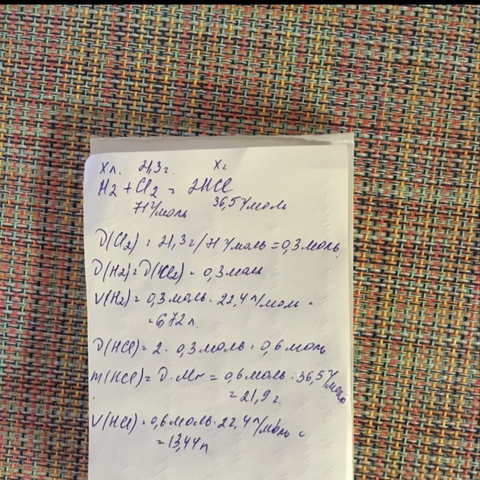 Хл. 21,3г. Хг
H2 + Cl2 = 2HCl
71г/моль 36,5г/моль
υ(Cl2) = 21,3г/71г/моль = 0,3моль
υ(H2) = υ(Cl2) = 0,3моль
V(H2) = 0,3моль · 22,4л/моль =
= 6,72л.
υ(HCl) = 2 · 0,3моль = 0,6моль
m(HCl) = υ · Mr = 0,6моль · 36,5г/моль
= 21,9г.
V(HCl) = 0,6моль · 22,4л/моль =
= 13,44л